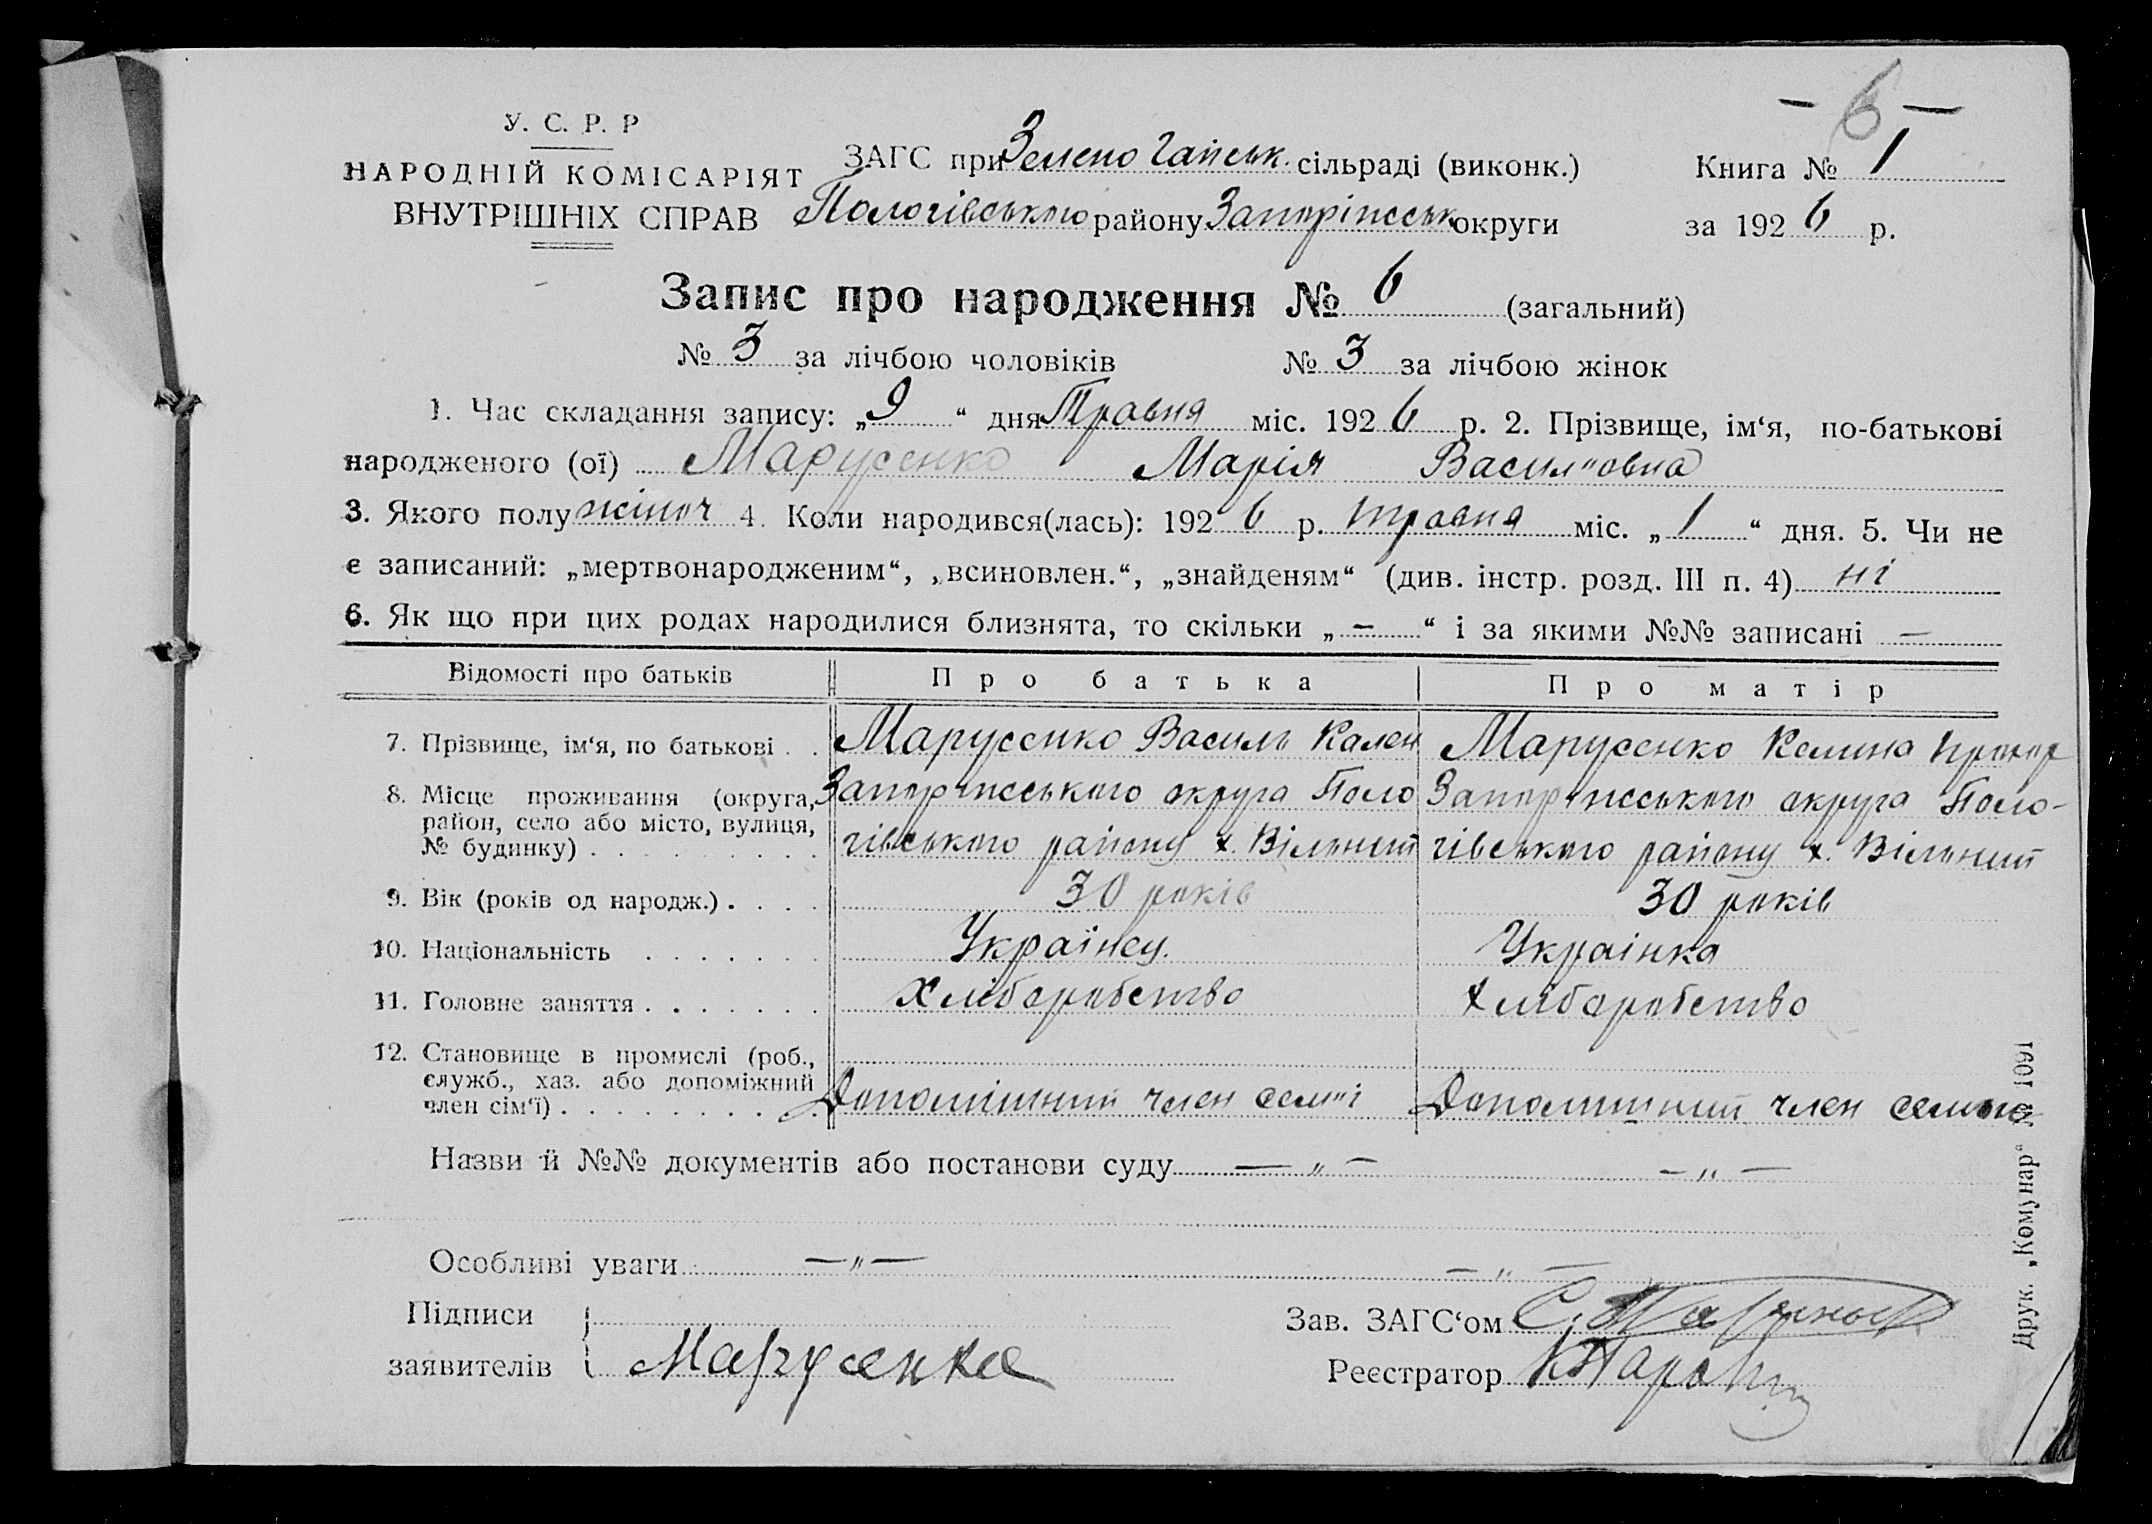 - 6 -
У. С. Р. Р
НАРОДНІЙ КОМІСАРІЯТ
ВНУТРІШНІХ СПРАВ
ЗАГС при Зелено Гайськ. сільраді (виконк.)
Пологівського району Запоріжськ округи
Книга № 1
за 1926 р.
Запис про народження № 6 (загальний)
№ 3 за лічбою чоловіків № 3 за лічбою жінок
1. Час складання запису: „9“ дня Травня міс. 1926 р. 2. Прізвище, ім‘я, по-батькові
народженого (ої) Марусенко Марія Василювна
3. Якого полу жіноч 4. Коли народився(лась): 1926 р. травня міс. „1“ дня. 5. Чи не
є записаний: „мертвонародженим“, „всиновлен.“, „знайденям“ (див. інстр. розд. III п. 4) ні
6. Як що при цих родах народилися близнята, то скільки „-“ і за якими №№ записані -
Відомості про батьків Про батька Про матір
7. Прізвище, ім‘я, по батькові . . Марусенко Василь Кален Марусенко Келина Прокор
8. Місце проживання (округа, Запоріжського округа Поло Запоріжського округа Поло-
район, село або місто, вулиця,
№ будинку) . . . . . . . . . гівського району х. Вільний гівського району х. Вільний
9. Вік (років од народж.) . . . . 30 років 30 років
10. Національність . . . . . . . Українец. Украінка
11. Головне заняття . . . . . . . Хліборобство Хліборобство
12. Становище в промислі (роб.,
служб., хаз. або допоміжний
член сім‘ї) . . . . . . . . . . Допоміжний член семьі Допоміжний член
Назви й №№ документів або постанови суду — „ — — „ —
Особливі уваги — „ — — „ —
Підписи
заявителів Марусенко
Зав. ЗАГС‘ом
Реєстратор
Друк. „Комунар“ № 1091